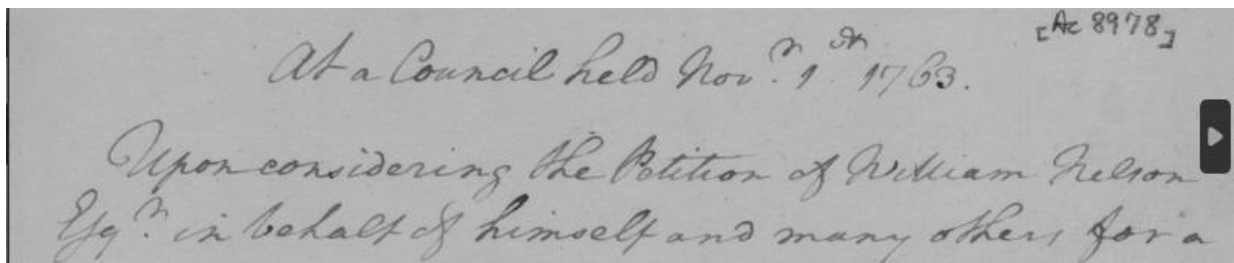 [Ac 8978]
At a Council held Nov.r 1.st 1763.
Upon considering the Petition of William Nelson
Esq.r in behalf of himself and many others for a